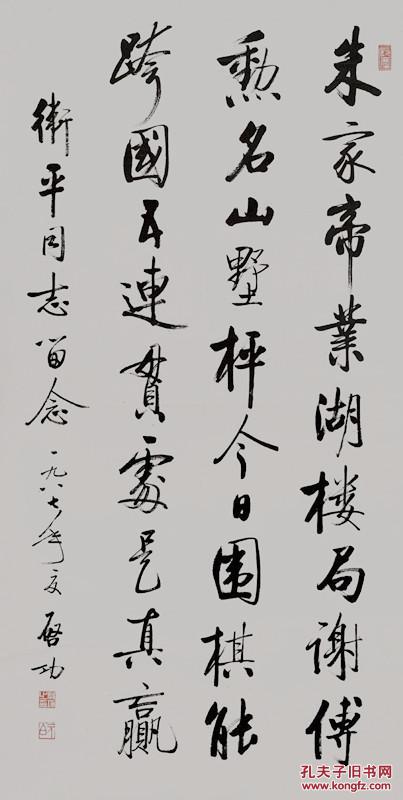 朱家帝業湖楼局謝傅
勲名山墅枰今日围棋能
跨國五連貫處是真贏
衛平同志留念 一九八七年夏 启功
孔夫子旧书网
kongfz.com